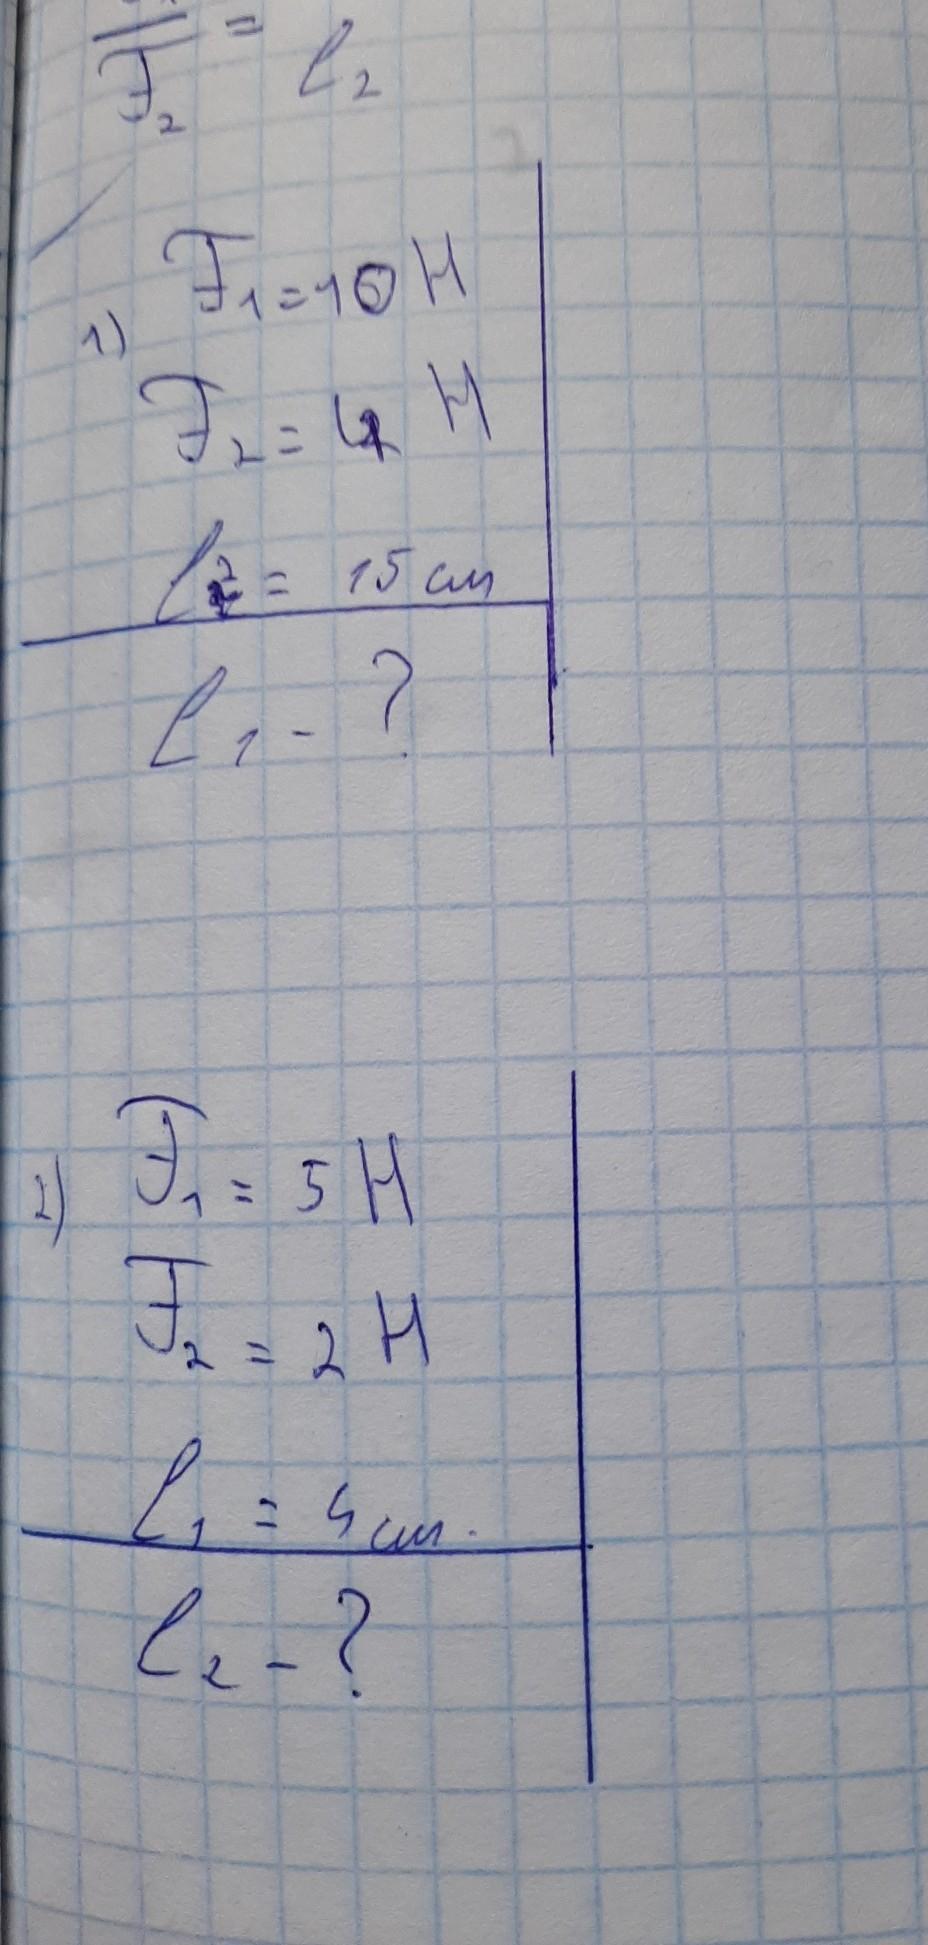 F₂ = l₂
1) F₁ = 10 H
F₂ = 4 H
l₂ = 15 см
l₁ - ?
2) F₁ = 5 H
F₂ = 2 H
l₁ = 4 см.
l₂ - ?